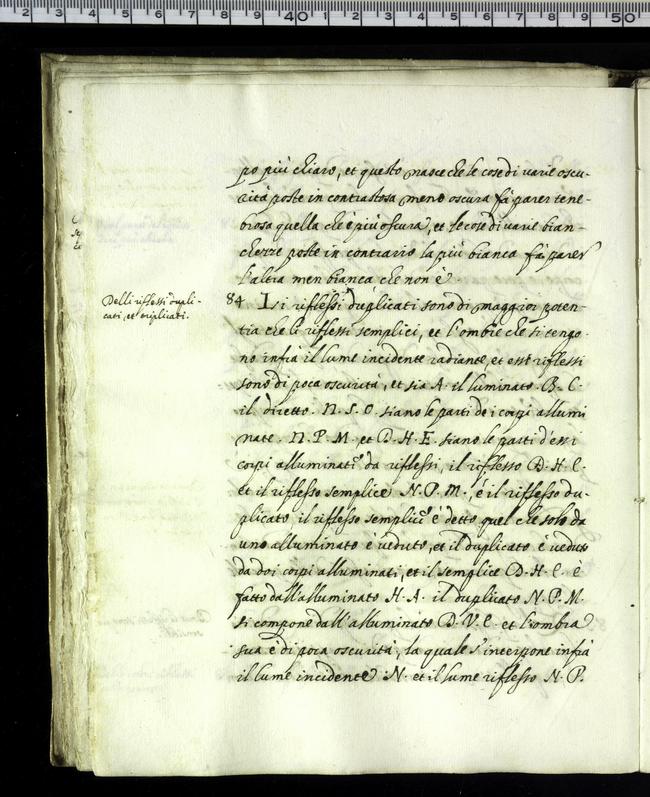 po più chiaro, et questo nasce che le cose di varie oscu-
rità poste in contrasto sa meno oscura fà parer tene-
brosa quella che è più oscura, et le cose di varie bian-
chezze poste in contrario la più bianca fà parer
l'altra men bianca che non è
Delli riflessi dupli-
cati, et triplicati.
84 Li riflessi duplicati sono di maggior poten-
tia che li riflessi semplici, et l'ombre che si tengo-
no infrà il lume incidente radiante et essi riflessi
sono di poca oscurità, et sia A. il luminato. B. C.
il diretto. N. S. O. siano le parti de i corpi allumi
nate. N. P. M. et D. H. E. siano le parti d'essi
corpi alluminati da riflessi, il riflesso D. H. E.
et il riflesso semplice N. P. M., é il riflesso du-
plicato, il riflesso semplice é detto quel che solo da
uno alluminato è veduto, et il duplicato è veduto
da doi corpi alluminati, et il semplice D. H. E. è
fatto dall'alluminato H. A. il duplicato N. P. M.
si compone dall'alluminato D. V. E. et l'ombra
sua é di poca oscurità, la quale s'interpone infrà
il lume incidente N. et il lume riflesso N. P.